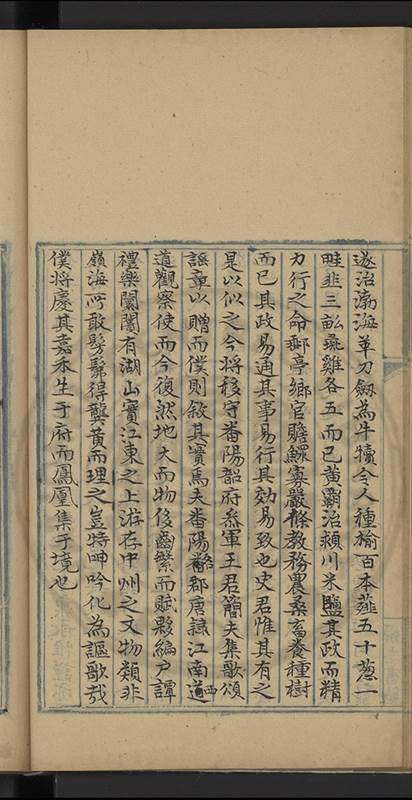 遂治渤海革刀劒為牛犢令人種榆百本薤五十葱一
畦韭三畝彘雞各五而已黄霸治頴川米鹽其政而精
力行之命郵亭鄉官贍鰥寡嚴條教務農桑畜養種樹
而已其政易通其事易行其効易致也史君惟其有之
是以似之今将移守畨陽韶府叅軍王君簡夫集歌頌
謡童以贈而僕則敘其實焉夫畨陽舊郡唐隷江南西道
道觀察使而今復然地大而物衆齒繁而賦夥編户譚
禮樂闤闠有湖山實江東之上游存中州之文物類非
嶺海所敢髣髴得龔黄而理之豈特呻吟化為謳歌哉
僕将慶其嘉禾生于府而鳳凰集于境也